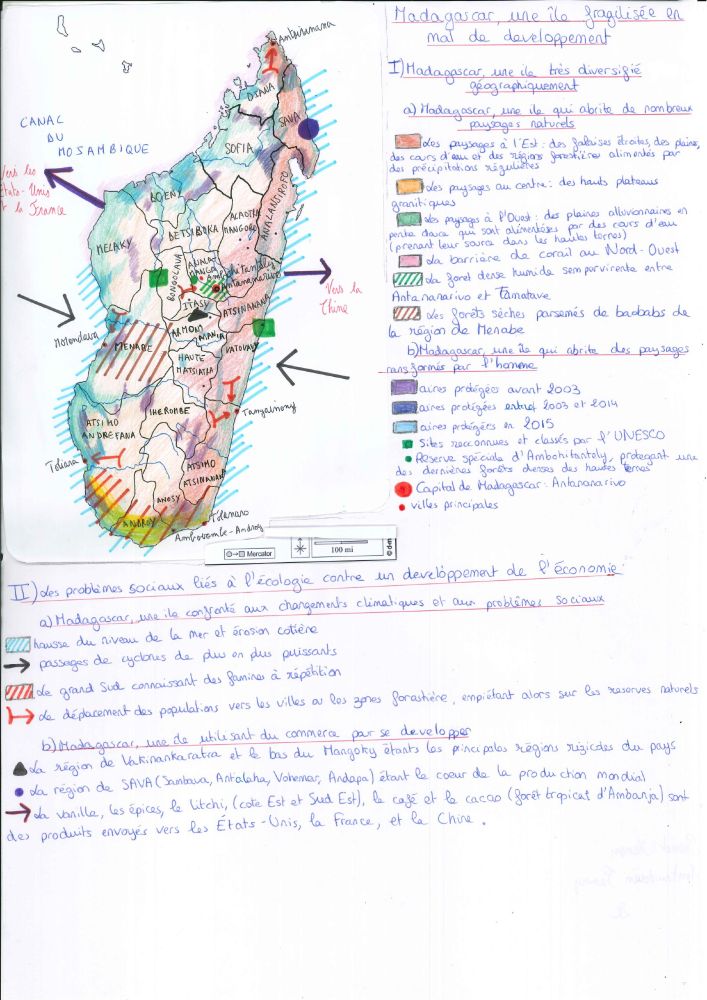 Madagascar, une île fragilisée en
mal de developpement
I) Madagascar, une ile très diversifié
géographiquement
a) Madagascar, une ile qui abrite de nombreux
paysages naturels
Les paysages à l'Est : des falaises étroites, des plaines,
des cours d'eau et des régions forestières alimentés par
des précipitations régulières
Les paysages au centre : des hauts plateaus
granitiques
Les paysages à l'Ouest : des plaines alluvionnaires en
pente douce qui sont alimentées par des cours d'eau
(prenant leur source dans les hautes terres)
La barrière de corail au Nord-Ouest
La foret dense humide sempervirente entre
Antananarivo et Tamatave
Les forêts sèches parsemés de baobabs de
la région de Menabe
b) Madagascar, une ile qui abrite des paysages
transformés par l'homme
aires protégées avant 2003
aires protégées entre 2003 et 2014
aires protégées en 2015
Sites reconnues et classés par l'UNESCO
Réserve spéciale d'Ambohitantoly, protegant une
des dernières forêts denses des hautes terres
Capital de Madagascar : Antananarivo
villes principales
CANAL
DU
MOSAMBIQUE
Vers les
États-Unis
et la France
Vers la
Chine
Antsiranana
DIANA
SAVA
SOFIA
BOENY
BETSIBOKA
MELAKY
ALAOTRA
MANGORO
ANALANJIROFO
BONGOLAVA
ANALA
MANGA
Ambohitantoly
Antananarivo
ITASY
ATSINANANA
Morondava
MENABE
AMORON
MANIA
HAUTE
MATSIATRA
VATOVAVY
IHEROMBE
ATSIMO
ANDREFANA
Toliara
ATSIMO
ATSINANANA
ANOSY
ANDROY
Ambovombe-Androy
Mercator
100 mi
II) Les problèmes sociaux liés à l'écologie contre un developpement de l'économie
a) Madagascar, une ile confronté aux changements climatiques et aux problèmes sociaux
hausse du niveau de la mer et érosion cotière
passages de cyclones de plus en plus puissants
Le grand Sud connaissant des famines à répétition
Le déplacement des populations vers les villes ou les zones forastière, empiétant alors sur les reserves naturels
b) Madagascar, une ile utilisant du commerce pour se developper
La région de Vakinankaratra et le bas du Mangoky étants les principales régions rizicoles du pays
La région de SAVA (Sambava, Antalaha, Vohemar, Andapa) étant le coeur de la production mondial
La vanille, les épices, le litchi, (cote Est et Sud Est), le café et le cacao (forêt tropical d'Ambanja) sont
des produits envoyés vers les États-Unis, la France, et la Chine.